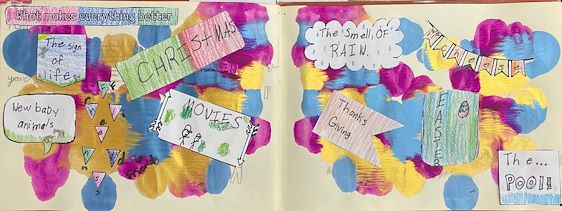 What makes everything better
The sign
of
life
CHRISTMAS
New baby
animals
MOVIES
The Smell OF
RAIN.
Thanks
Giving
EASTER
The...
POOL!